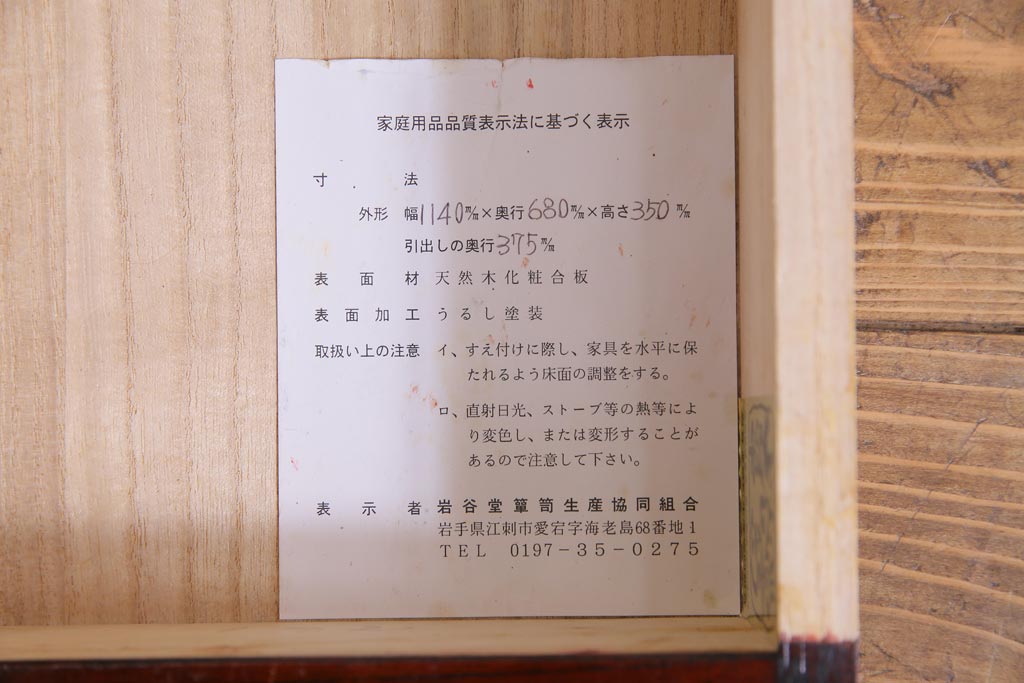 家庭用品品質表示法に基づく表示
寸法
外形 幅1140㎜×奥行680㎜×高さ350㎜
引出しの奥行375㎜
表面材 天然木化粧合板
表面加工 うるし塗装
取扱い上の注意 イ、すえ付けに際し、家具を水平に保
たれるよう床面の調整をする。
ロ、直射日光、ストーブ等の熱等によ
り変色し、または変形することが
あるので注意して下さい。
表示者 岩谷堂簞笥生産協同組合
岩手県江刺市愛宕字海老島68番地1
TEL 0197-35-0275